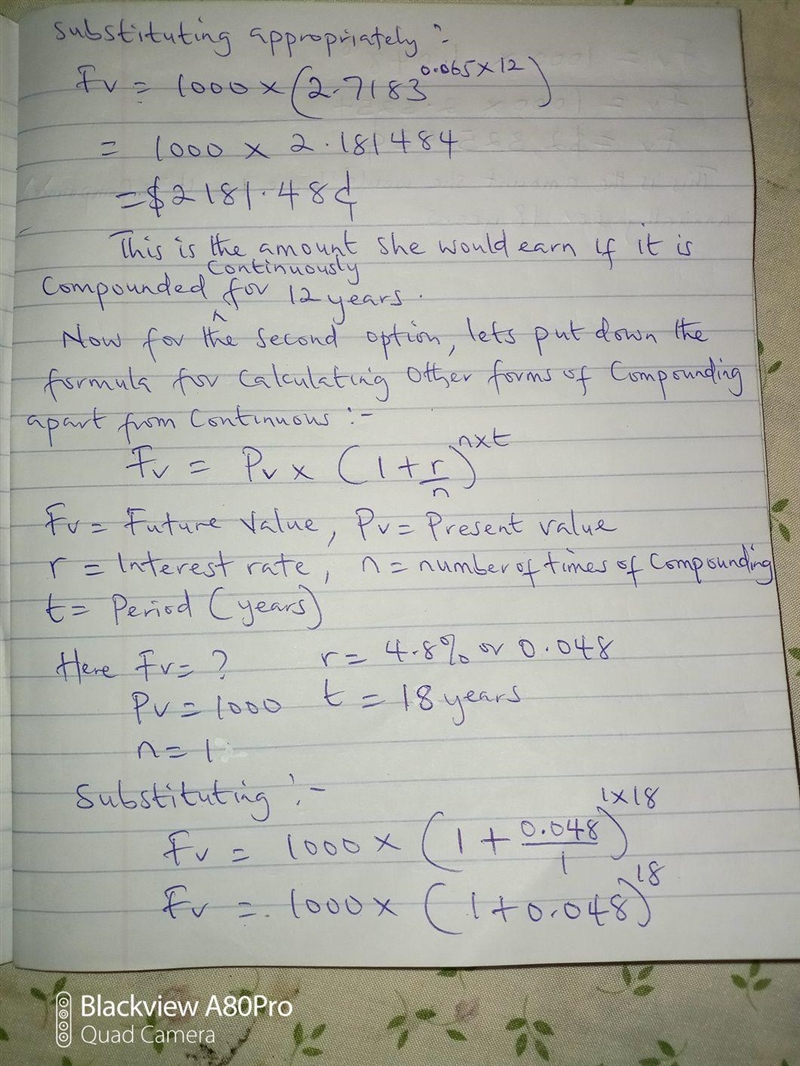 Substituting appropriately :-
Fv = 1000 × (2.7183^0.065×12)
= 1000 × 2.181484
= $2181.48¢
This is the amount she would earn if it is
Compounded continuously for 12 years.
Now for the second option, lets put down the
formula for calculating other forms of Compounding
apart from Continuous :-
Fv = Pv × (1 + r/n)^n×t
Fv = Future Value, Pv = Present value
r = Interest rate, n = number of times of Compounding
t = Period (years)
Here Fv = ? r = 4.8% or 0.048
Pv = 1000 t = 18 years
n = 1
Substituting :-
Fv = 1000 × (1 + 0.048/1)^1×18
Fv = 1000 × (1 + 0.048)^18
Blackview A80Pro
Quad Camera